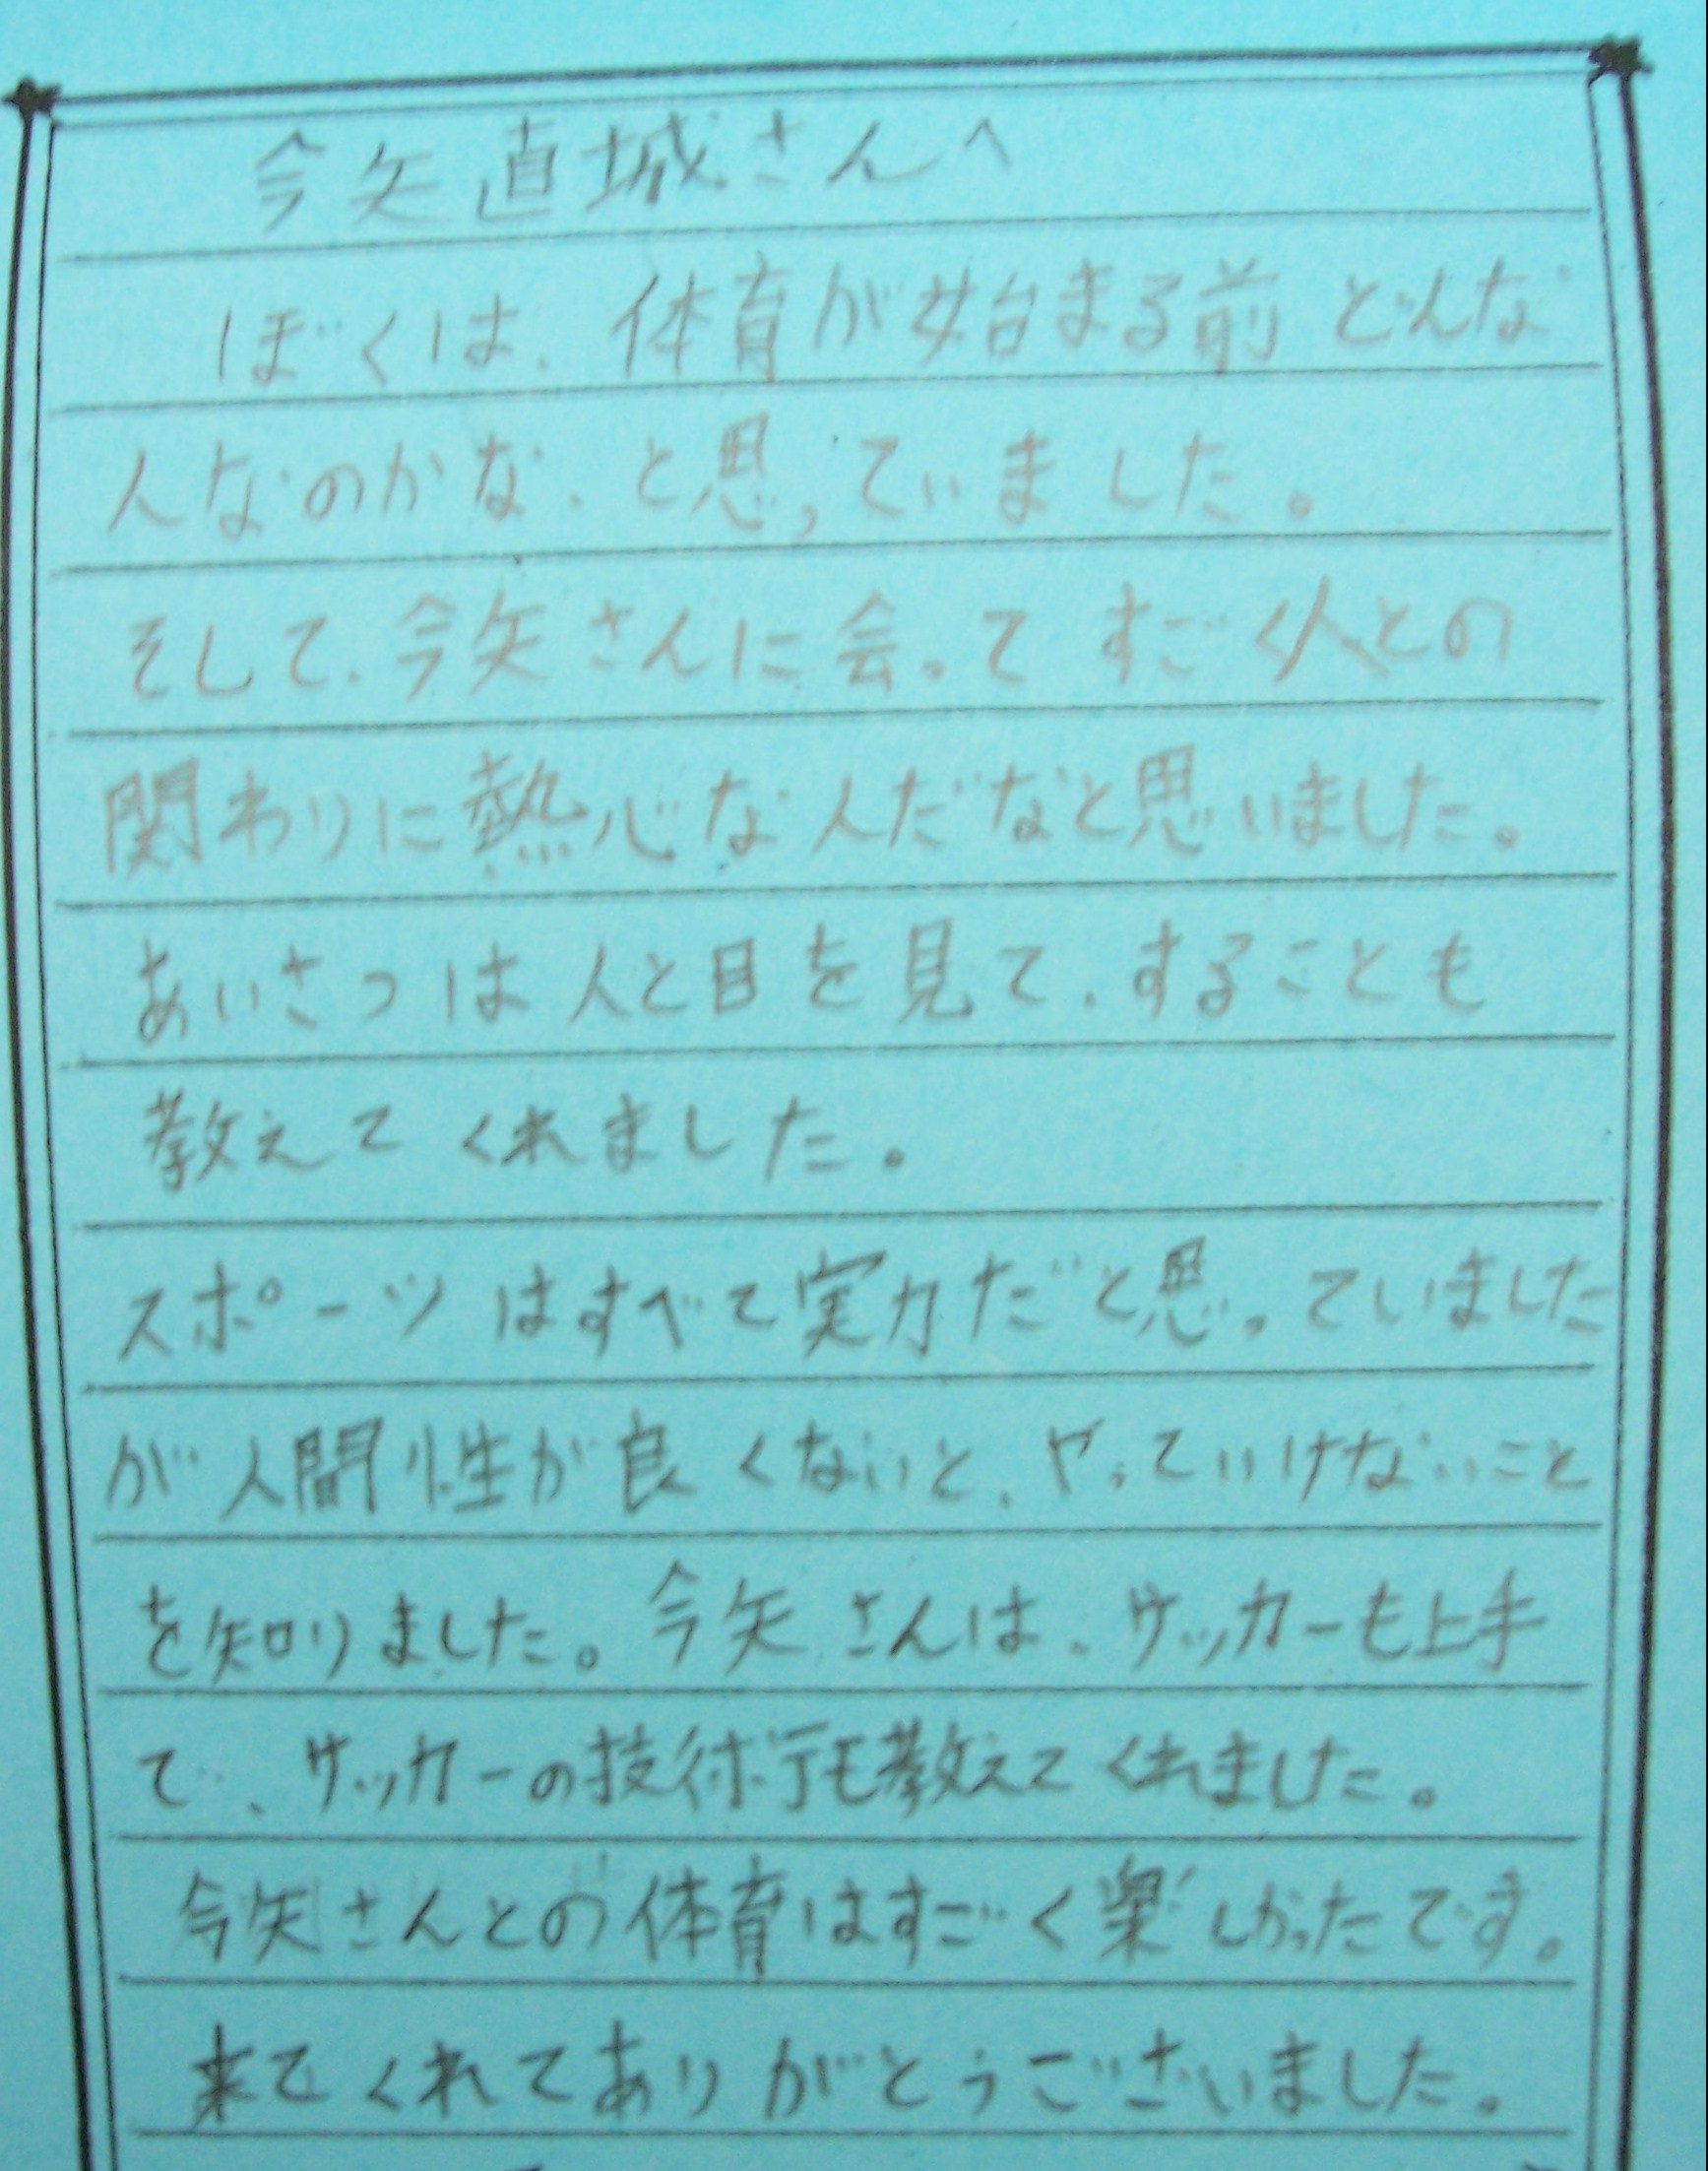 今矢直城さんへ
ぼくは、体育が始まる前どんな
人なのかな、と思っていました。
そして、今矢さんに会ってすごく人との
関わりに熱心な人だなと思いました。
あいさつは人と目を見て、することも
教えてくれました。
スポーツはすべて実力だと思っていました
が人間性が良くないと、やっていけないこと
を知りました。今矢さんは、サッカーも上手
で、サッカーの技術も教えてくれました。
今矢さんとの体育はすごく楽しかったです。
来てくれてありがとうございました。